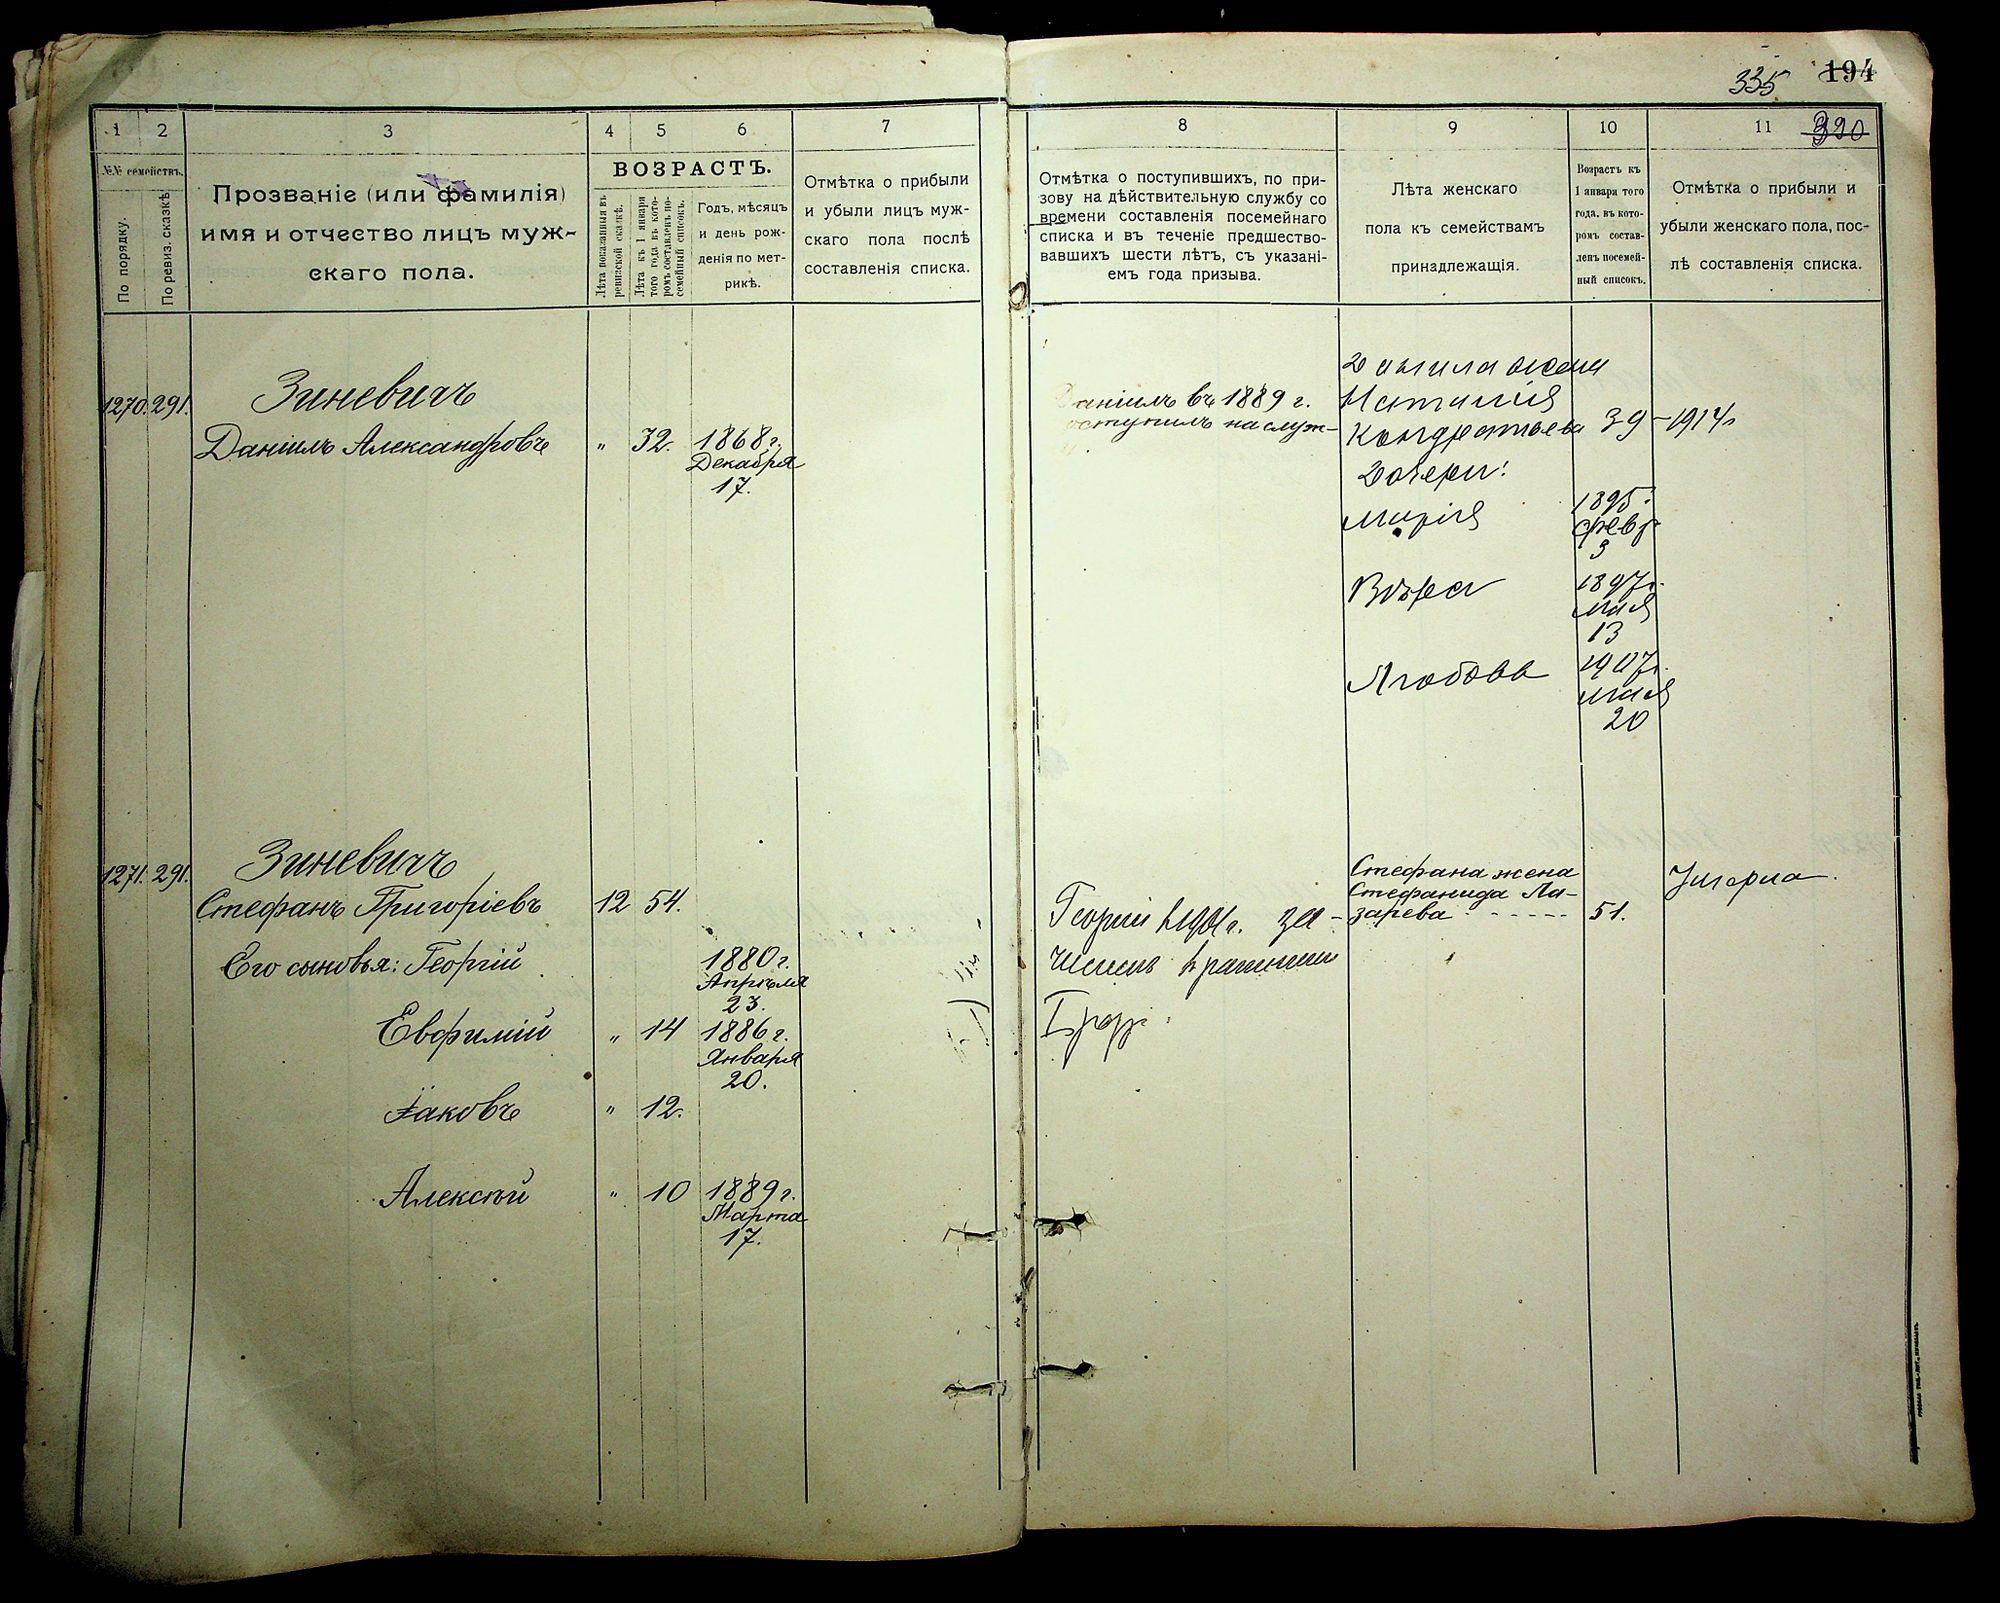 335 194
1 2 3 4 5 6 7
№№ семействъ.
По порядку.
По ревиз. сказкѣ
Прозваніе (или фамилія)
имя и отчество лицъ муж-
скаго пола.
ВОЗРАСТЪ.
Лѣта показанныя въ
ревизской сказкѣ.
Лѣта къ 1 января
того года въ кото-
ромъ составленъ по-
семейный списокъ.
Годъ, мѣсяцъ
и день рож-
денія по мет-
рикѣ.
Отмѣтка о прибыли
и убыли лицъ муж-
скаго пола послѣ
составленія списка.
8 9 10 11 320
Отмѣтка о поступившихъ, по при-
зову на дѣйствительную службу со
времени составленія посемейнаго
списка и въ теченіе предшество-
вавшихъ шести лѣтъ, съ указані-
емъ года призыва.
Лѣта женскаго
пола къ семействамъ
принадлежащія.
Возрастъ къ
1 января того
года, въ кото-
ромъ состав-
ленъ посемей-
ный списокъ.
Отмѣтка о прибыли и
убыли женскаго пола, пос-
лѣ составленія списка.
1270. 291. Зиневичъ
Даніилъ Александровъ " 32. 1868 г.
Декабря
17.
Даніилъ въ 1889 г.
поступилъ на служ-
Данила жена
Наталія
Кондратьева 39 - 1914 г
Дочери:
Марія 1895 г.
Февр
3
Вѣра 1897 г.
Мая
13
Любовь 1907 г.
Мая
20
1271. 291. Зиневичъ
Стефанъ Григоріевъ 12 54.
Его сыновья: Георгій 1880 г.
Апрѣля
23.
Евфимій " 14 1886 г.
Января
20.
Іаковъ " 12.
Алексѣй " 10 1889 г.
Марта
17.
Георгій за-
численъ в ратники
I
Стефана жена
Стефанида Ла-
зарева - - - - - 51.
Умерла.